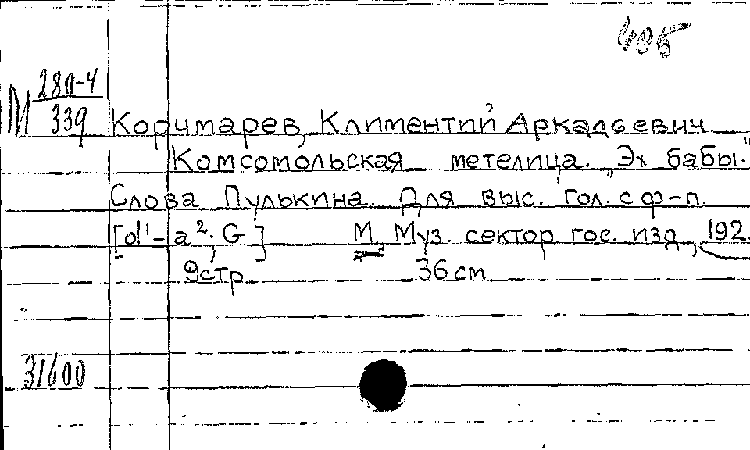 405
М 280-4
339
Корчмарев, Климентий Аркадьевич
Комсомольская метелица. "Эх бабы."
Слова Пулькина. Для выс. гол. с ф-п.
[d¹-a². G] М. Муз. сектор гос. изд., 192
9 стр. 36 cm
31600